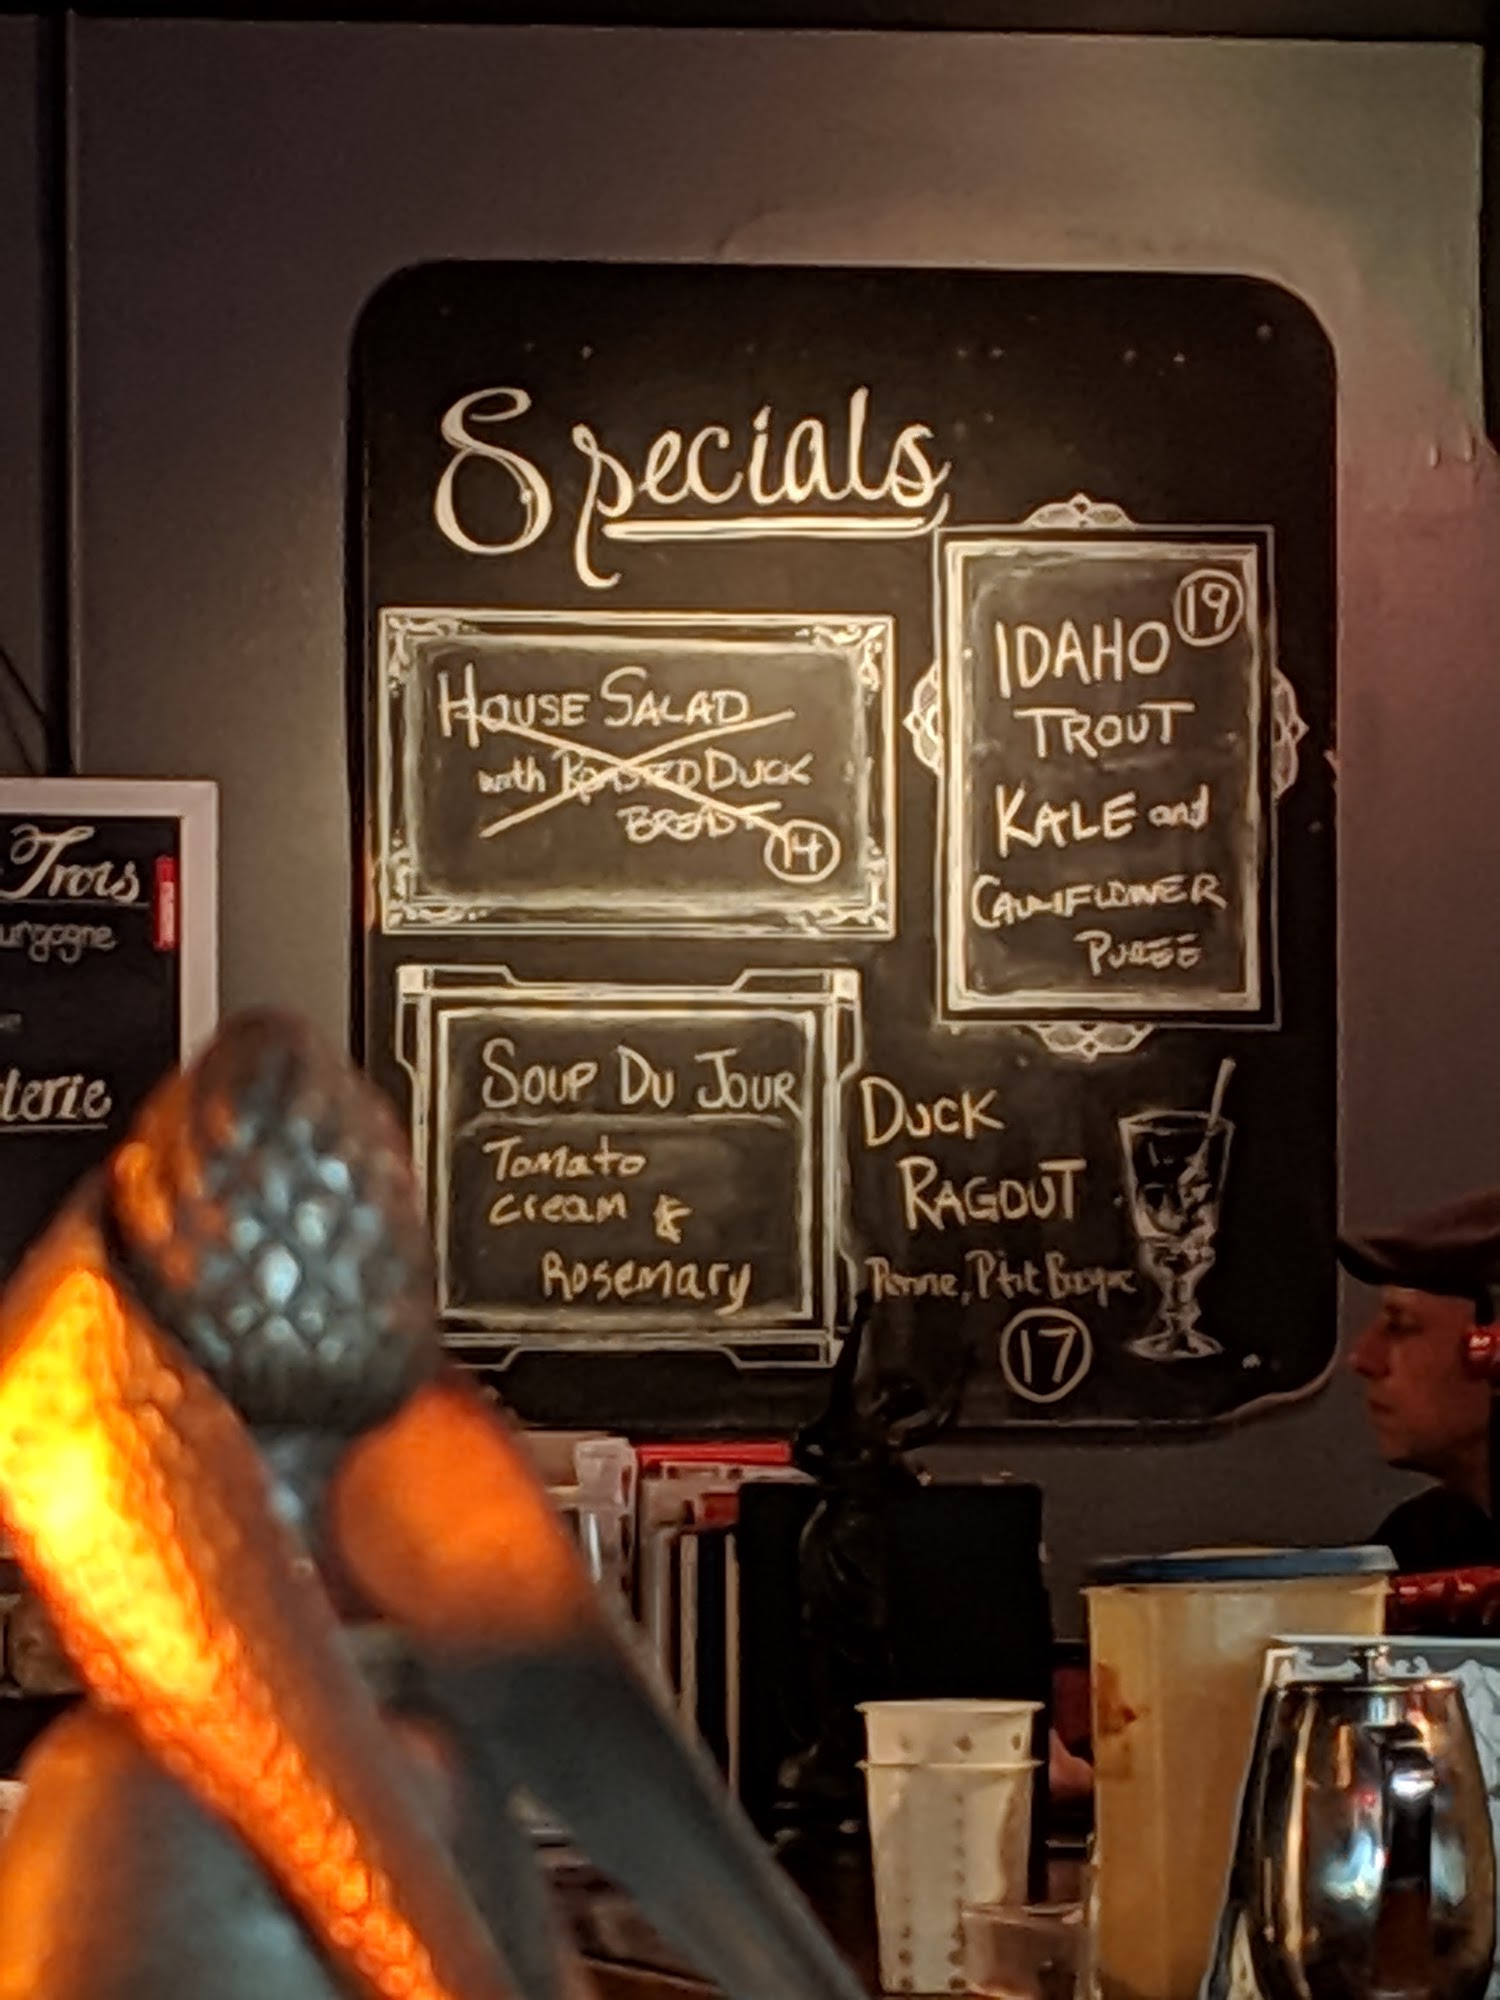 Specials
HOUSE SALAD
with ROASTED DUCK
BREAST
14
19
IDAHO
TROUT
KALE and
CAULIFLOWER
PUREE
SOUP DU JOUR
Tomato
cream &
Rosemary
DUCK
RAGOUT
Penne, P'tit Basque
17
Trois
urgogne
terie